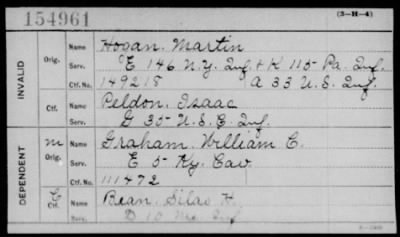 154961 (3-H-4)
INVALID
Orig. Name Hogan, Martin
Serv. E 146 N.Y. Inf. & K 115 Pa. Inf.
Ctf. No. 149218 A 33 U.S. Inf.
Ctf. Name Peldon, Isaac
Serv. G 35 U.S.C. Inf.
DEPENDENT
m Orig. Name Graham, William C.
Serv. E 5 Ky. Cav
Ctf. No. 111472
C Ctf. Name Bean, Silas H.
Serv. D 10 Me. Inf